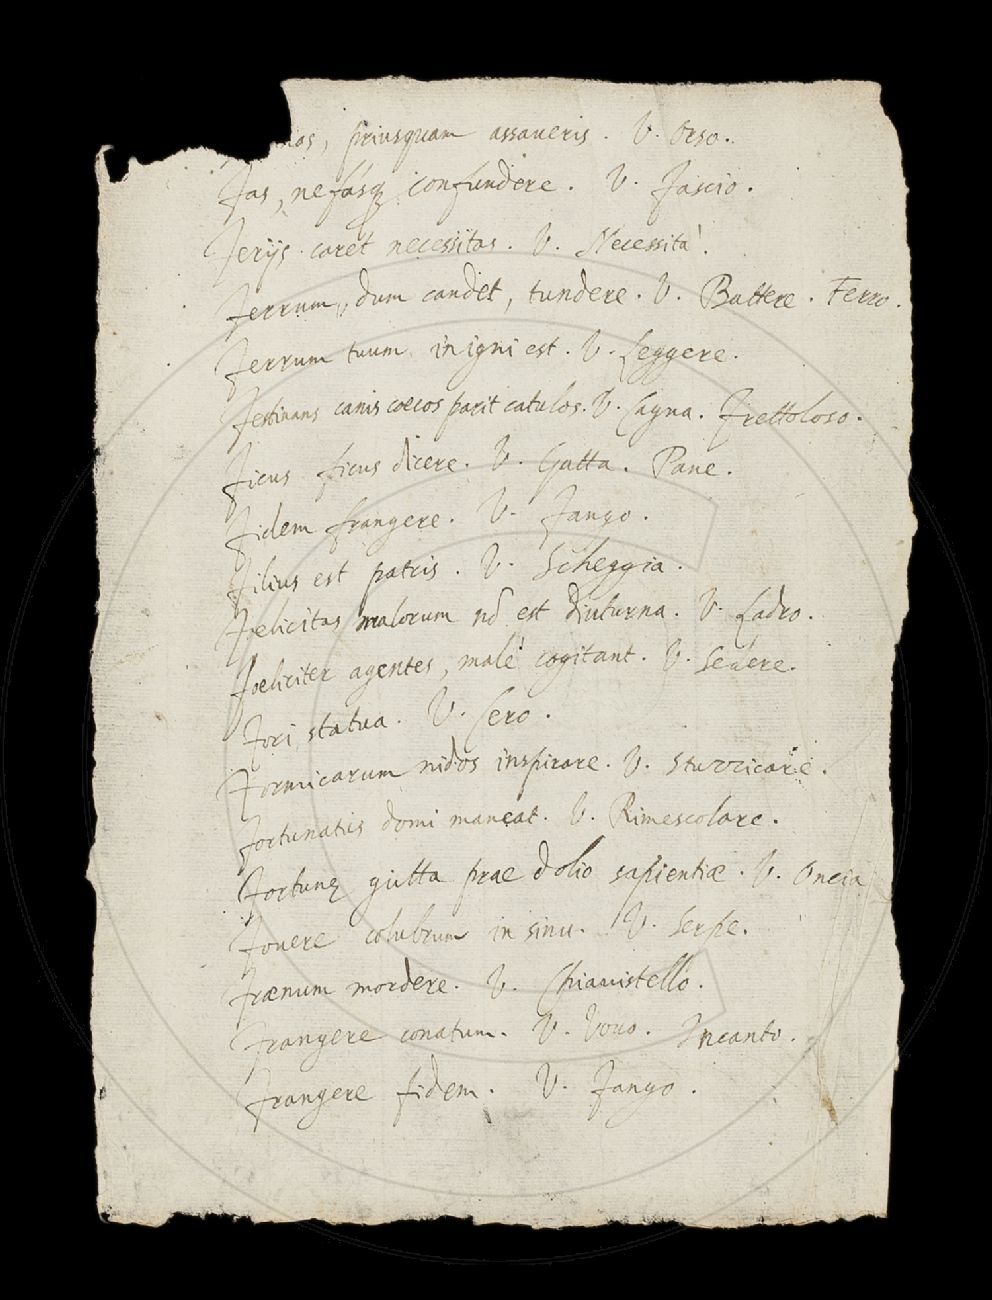 priusquam assaveris. V. Orso.
Fas, nefasq confundere. V. Fascio.
Ferijs caret necessitas. V. Necessità.
Ferrum, dum candet, tundere. V. Battere. Ferro.
Ferrum tuum in igni est. V. Leggere.
Festinans canis cœcos parit catulos. V. Cagna. Frettoloso.
Ficus ficus dicere. V. Gatta. Pane.
Fidem frangere. V. Fango.
Filius est patris. V. Scheggia.
Fœlicitas malorum nō est diuturna. V. Ladro.
Fœliciter agentes, malè cogitant. V. Sedere.
Fori statua. V. Cero.
Formicarum nidos inspirare. V. Stuzzicare.
Fortunatus domi maneat. V. Rimescolare.
Fortunę gutta prae dolio sapientiæ. V. Oncia
Fouere colubrum in sinu. V. Serpe.
Frænum mordere. V. Chiauistello.
Frangere conatum. V. Vouo. Incanto.
Frangere fidem. V. Fango.